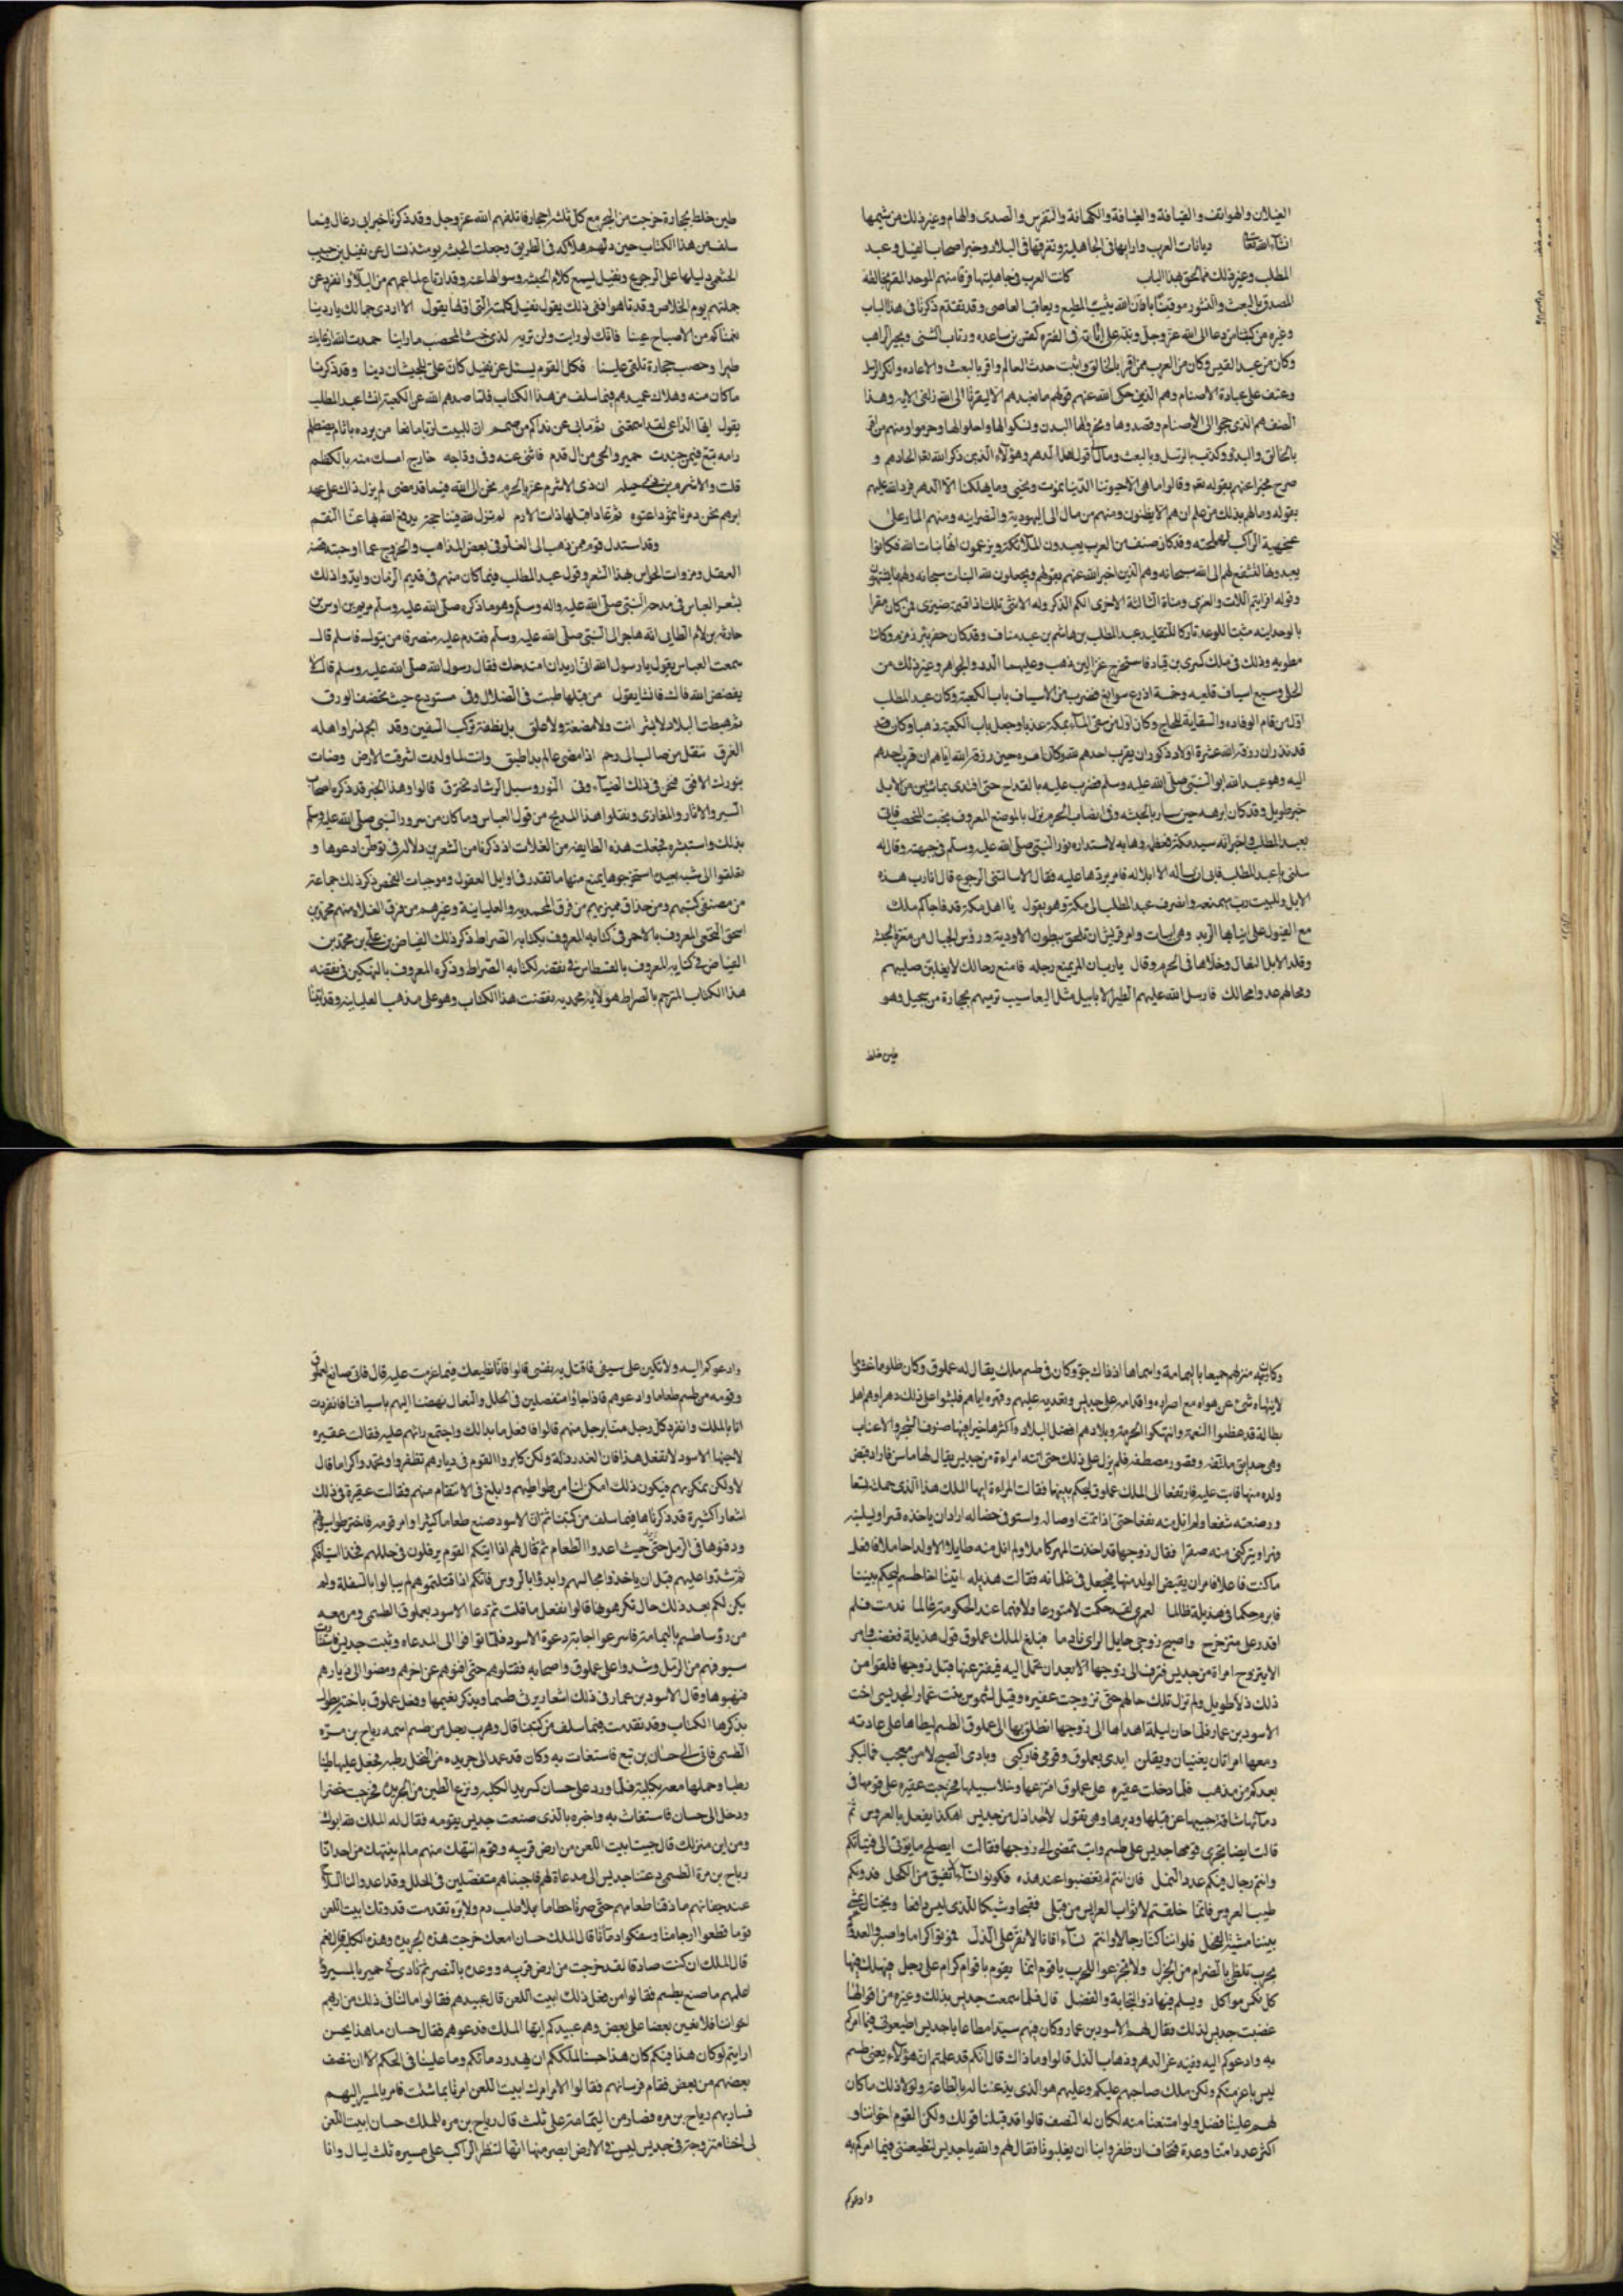 الغيلان والهواتف والقيافة والعيافة والكهانة والتفرس والصدى والهام وغير ذلك من شيمها
ان شاء الله تعالى ديانات العرب وارايها في الجاهلية وتفرقها في البلاد وخبر اصحاب الفيل وعبد
المطلب وغير ذلك مما لحق بهذا الباب كانت العرب في جاهليتها فرقا منهم الموحد المقر بخالقه
المصدق بالبعث والنشور موقنا بان الله يثيب المطيع ويعاقب العاصي وقد تقدم ذكرنا في هذا الباب
وغيره من كتبنا من دعا الى الله عز وجل ونبه على اياته في الفترة كقس بن ساعده ورئاب الشني وبحيرا الراهب
وكان من عبد القيس وكان من العرب من اقر بالخالق واثبت حدث العالم واقر بالبعث والاعاده وانكر الرسل
وعكف على عبادة الاصنام وهم الذين حكى الله عنهم قولهم ما نعبدهم الا ليقربنا الى الله زلفى الايه وهذا
الصنف هم الذي حجوا الى الاصنام وقصدوها ونحروا لها البدن ونسكوا لها واحلوا لها وحرموا ومنهم من اقر
بالخالق وكذب بالرسل وبالبعث ومال الى قول اهل الدهر وهؤلاء الذين ذكر الله تعالى الحادهم و
خبر عنهم بقوله تعالى وقالوا ما هي الا حيوتنا الدنيا نموت ونحيى وما يهلكنا الا الدهر فرد الله عليهم
بقوله وما لهم بذلك من علم ان هم الا يظنون ومنهم من مال الى اليهودية والنصرانيه ومنهم المار على
عنجهية الراكب لهجمته وقد كان صنف من العرب يعبدون الملائكة ويزعمون انها بنات الله فكانوا
يعبدوها لتشفع لهم الى الله سبحانه وهم الذين اخبر الله عنهم بقوله ويجعلون لله البنات سبحانه ولهم ما يشتهون
وقوله افرايتم اللات والعزى ومناة الثالثة الاخرى الكم الذكر وله الانثى تلك اذا قسمة ضيزى فمن كان مقرا
بالوحدانيه مثبتا للوعيد تاركا للتقليد عبد المطلب بن هاشم بن عبد مناف وقد كان حفر بئر زمزم وكانت
مطويه وذلك في ملك كسرى بن قباد فاستخرج غزالين ذهب وعليهما الدر والجواهر وغير ذلك من
الحلي وسبع اسياف قلعيه وخمسة ادرع سوابغ فضرب من الاسياف بابا للكعبة وكان عبد المطلب
اول من اقام الرفاده والسقاية للحاج وكان اول من سقى الماء بمكة عذبا وجعل باب الكعبة ذهبا وكان
قد نذر ان رزقه الله عشرة اولاد ذكور ان يقرب احدهم لله وكان امره حين رزقه الله اياهم ان قرب احدهم
اليه وهو عبد الله ابو النبي صلى الله عليه وسلم فضرب عليه بالقداح حتى افتدى بمائة من الابل
خبر طويل وقد كان ابرهه حين سار بالحبشه ووافى انصاب الحرم نزل بالموضع المعروف بخبت المحصب فاتى
بعبد المطلب واخبر انه سيد مكة فعظمه وهابه لاستداره نور النبي صلى الله عليه وسلم في جبهته وقال له
سلني يا عبد المطلب فابى ان يساله الا ابلا له فامر بردها عليه فقال الا سالتني الرجوع قال انا رب هذه
الابل وللبيت رب سيمنعه وانصرف عبد المطلب الى مكة وهو يقول يا اهل مكة قد فاجاكم ملك
مع الفيول على انيابها الزبد وامر قريش ان تلحق ببطون الاودية ورؤس الجبال من معرة الحبشه
وقلد الابل النعال وخلاها في الحرم وقال يا رب ان المرء يمنع رحله فامنع رحالك لا يغلبن صليبهم
ومحالهم عدوا محالك فارسل الله عليهم الطير الابابيل مثل اليعاسيب ترميهم بحجارة من سجيل وهو
طين خلط
طين خلط بحجارة خرجت من البحر مع كل ثلثه احجار فاتلفهم الله عز وجل وقد ذكرنا خبر ابي رغال فيما
سلف من هذا الكتاب حين دلهم هلاكه في الطريق وجعلت الحبشه يومئذ تسال عن نفيل بن حبيب
الخثعمي دليلها على الرجوع ونفيل يسمع كلام الحبشه وسوالها عنه وقد ارتاع لما عمهم من البلاء وانفرد عن
جملتهم يوم الخلاص وقد تاهوا ففي ذلك يقول نفيل كلمته التي اولها يقول الا اردى جمالك يا ردينا
نعمناكم من الاصباح عينا فانك لو رايت ولن تريه لدى خبت المحصب ما راينا حمدت الله اذ عاينت
طيرا وحصب حجارة تلقى علينا فكل القوم يسئل عن نفيل كان علي للحبشان دينا وقد ذكرنا
ما كان منه وهلاك عميدهم فيما سلف من هذا الكتاب فلما صدهم الله عن الكعبة انشا عبد المطلب
يقول ايها الداعي لقد اسمعتني ثم ما بي عن نداكم من صمم ان للبيت لربا مانعا من يرده باثام يصطلم
رامه تبع فيمن جندت حمير والحي من ال قدم فانثنى عنه وفي اوداجه خارج امسك منه بالكظم
قلت والاشرم ان ذي الاشرم غر بالحرم نحن ال الله فيما قد مضى لم يزل ذاك على عهد
ابرهم نحن دمرنا ثمودا عنوه ثم عادا قبلها ذات الارم لم تزل لله فينا حجة يدفع الله بها عنا النقم
وقد استدل قوم ممن ذهب الى الغلو في بعض المذاهب والخروج عما اوجبته قضية
العقل وضرورات الحواس بهذا الشعر وقول عبد المطلب فيما كان منهم في قديم الزمان وايدوا ذلك
بشعر العباس في مدحه النبي صلى الله عليه واله وسلم وهو ما ذكره صلى الله عليه وسلم خريم بن اوس بن
حارثه بن لام الطائي انه هاجر الى النبي صلى الله عليه وسلم فقدم عليه منصرفا من تبوك فاسلم قال
سمعت العباس يقول يا رسول الله اني اريد ان امتدحك فقال رسول الله صلى الله عليه وسلم قل لا
يفضض الله فاك فانشا يقول من قبلها طبت في الضلال وفي مستودع حيث يخصف الورق
ثم هبطت البلاد لا بشر انت ولا مضغة ولا علق بل نطفة تركب السفين وقد الجم نسرا واهله
الغرق تنقل من صالب الى رحم اذا مضى عالم بدا طبق وانت لما ولدت اشرقت الارض وضات
بنورك الافق فنحن في ذلك الضياء وفي النور وسبل الرشاد نخترق قالوا وهذا الخبر قد ذكره اصحاب
السير والاثار والمغازي ونقلوا هذا المديح من قول العباس وما كان من سرور النبي صلى الله عليه وسلم
بذلك واستبشره فجعلت هذه الطايفه من الغلات اذ ذكرنا من الشعرين دلاله ادعوها و
تغلغلوا الى شبه بعيد استخرجوها يمنع منها ما تقدر في اوايل العقول وموجبات الفحص ذكر ذلك جماعة
من مصنفي كتبهم ومن حذاق مميزيهم من فرق المحمديه والعليانية وغيرهم من فرق الغلاة منهم محمد بن
اسحق النخعي المعروف بالاحمر في كتابه المعروف بكتاب الصراط ذكر ذلك الفياض بن علي بن محمد بن
الفياض في كتابه المعروف بالقسطاس في نقضه لكتاب الصراط وذكره المعروف بالنهكيني في نقضه
هذا الكتاب المترجم بالصراط هؤلاء محمديه نقضت هذا الكتاب وهو على مذهب العليانيه وقد اتينا
وكانت منزلهم جميعا باليمامة واسمها اذ ذاك جو وكان في طسم ملك يقال له عملوق وكان ظلوما غشوما
لا ينهاه شئ عن هواه مع اصراره واقدامه على جديس وتعديه عليهم وقهره اياهم فلبثوا على ذلك دهرا وهم اهل
بطالة قد غمطوا النعمة وانتهكوا الحرمة وبلادهم افضل البلاد واكثرها خيرا فيها صنوف الشجر والاعناب
وهي حدايق ملتفه وقصور مصطفه فلم يزل على ذلك حتى اتته امراءة من جديس يقال لها فاراد قبض
ولده منها فابت عليه فارتفعا الى الملك عملوق ليحكم بينهما فقالت المراءة ايها الملك هذا الذي حملته تسعا
ورضعته شفعا ولم انل منه نفعا حتى اذا تمت اوصاله واستوفى خصاله اراد ان ياخذه قسرا ويسلبنيه
قهرا ويتركني منه صفرا فقال زوجها قد اخذت المهر كاملا ولم انل منه طايلا الا ولدا خاملا فافعل
ما كنت فاعلا فامر ان يقبض الولد منها فيجعل في غلمانه فقالت هذيله اتينا اخا طسم ليحكم بيننا
فابرم حكما في هذيلة ظالما لعمري لقد حكمت لا متورعا ولا فهما عند الحكومة عالما ندمت فلم
اقدر على متزحزح واصبح زوجي حايل الراي نادما فبلغ الملك عملوق قول هذيلة فغضب وامر
الا يتزوج امراة من جديس فتزف الى زوجها الا بعد ان تحمل اليه فيفترعها قبل زوجها فلقوا من
ذلك ذلا طويل ولم تزل تلك حالهم حتى تزوجت عفيره وقيل الشموس بنت غفار الجديسي اخت
الاسود بن غفار فلما حان ليلة اهداها الى زوجها انطلق بها الى عملوق الطسمي ليطاها على عادته
ومعها امراتان يغنيان ويقلن ابدي بعملوق وقومي فاركبي وبادري الصبح لامر معجب فما لبكر
بعدكم من مذهب فلما دخلت عفيره على عملوق افترعها وخلا سبيلها فخرجت عفيره على قومها في
دمائها شاقة جيبها عن قبلها ودبرها وهي تقول لا احد اذل من جديس اهكذا يفعل بالعروس ثم
قالت ايضا تحرض قومها جديس على طسم وابت تمضي الى زوجها فقالت ايصلح ما يؤتى الى فتياتكم
وانتم رجال فيكم عدد النمل فان انتم لم تغضبوا عند هذه فكونوا نساء لا تفيق من الكحل فدونكم
طيب العروس فانما خلقتم لاثواب العرايس فقبحا وشيكا للذي ليس دافعا ويختال يمشي
بيننا مشية الفحل فلو اننا كنا رجالا وانتم نساء لكنا لا نقر على الذل فموتوا كراما واصبروا لعدوكم
بحرب تلظى بالضرام من الجزل ولا تجزعوا للحرب يا قوم انما يقوم باقوام كرام على رجل فيهلك فيها
كل نكس مواكل ويسلم فيها ذو النجابة والفضل قال فلما سمعت جديس بذلك وغيره من اقوالها
غضبت جديس لذلك فقال لهم الاسود بن غفار وكان فيهم سيدا مطاعا يا جديس اطيعوني فيما امركم
به وادعوكم اليه ففيه عز الدهر وذهاب الذل قالوا وما ذاك قال انكم قد علمتم ان هؤلاء يعني طسم
ليس باعز منكم ولكن ملك صاحبهم عليكم وعليهم هو الذي يذعننا له بالطاعة ولولا ذلك ما كان
لهم علينا فضل ولو امتنعنا منه لكان له النصف قالوا قد قبلنا قولك ولكن القوم اخواننا و
اكثر عددا منا وعدة فنخاف ان ظفروا بنا ان يغلبونا فقال لهم والله يا جديس لتطيعنني فيما امركم به
وادعوكم
وادعوكم اليه ولاتكين على سيفي فاقتل به نفسي قالوا فانا نطيعك فيما عزمت عليه قال فاني صانع لعملوق
وقومه من طسم طعاما وادعوهم فاذا جاؤا متفضلين في الحلل والنعال نهضنا اليهم باسيافنا فانفردت
انا بالملك وانفرد كل رجل منا برجل منهم قالوا فافعل ما بدا لك واجتمع رايهم عليه فقالت عفيره
لاخيها الاسود لا تفعل هذا فان الغدر ذلة ولكن كابروا القوم في ديارهم تظفروا او تموتوا كراما قال
لا ولكن نمكر بهم فيكون ذلك امكن لنا من نواصيهم وابلغ في الانتقام منهم فقالت عفيرة في ذلك
اشعارا كثيرة قد ذكرناها فيما سلف من كتبنا ثم ان الاسود صنع طعاما كثيرا وامر قومه فاخترطوا سيوفهم
ودفنوها في الرمل حيث اعدوا الطعام ثم قال لهم اذا اتيكم القوم يرفلون في حللهم فخذوا اسيافكم
ثم شدوا عليهم قبل ان ياخذوا مجالسهم وابدؤا بالروس فانكم اذا قتلتموهم لم يبالوا بالسفلة ولم
يكن لكم بعد ذلك حال تكرهونها قالوا نفعل ما قلت ثم دعا الاسود بعملوق الطسمي ومن معه
من رؤسا طسم باليمامة فاسرعوا اجابة دعوة الاسود فلما توافوا الى المدعاه وثبت جديس فاستثاروا
سيوفهم من الرمل وشدوا على عملوق واصحابه فقتلوهم حتى افنوهم عن اخرهم ومضوا الى ديارهم
فنهبوها وقال الاسود بن غفار في ذلك اشعارا يرثي طسما ويذكر بغيها وفعل عملوق باخته يطول
بذكرها الكتاب وقد تقدمت فيما سلف من كتبنا قال وهرب رجل من طسم اسمه رياح بن مرة
الطسمي فاتى الى حسان بن تبع فاستغاث به وكان قد عمد الى جريده من النخل رطبه فجعل عليها طينا
رطبا وحملها معه بكلبة فلما ورد على حسان كسر يد الكلبه ونزع الطين من الجريده فخرجت خضرا
ودخل الى حسان فاستغاث به واخبره بالذي صنعت جديس بقومه فقال له الملك لله ابوك
ومن اين منزلك قال جيت ابيت اللعن من ارض قريبه وقوم انتهك منهم ما لم ينتهك من احد انا
رياح بن مرة الطسمي دعتنا جديس الى مدعاة لهم فاجبناهم متفضلين في الحلل وقد اعدوا لنا السلاح
عند جفانهم ما ذقنا طعامهم حتى صرنا حطاما بلا طلب دم ولا تره تقدمت فدونك ابيت اللعن
قوما قطعوا ارحامنا وسفكوا دمائنا قال الملك حسان امعك خرجت هذه الجريده وهذه الكلبه قال نعم
قال الملك ان كنت صادقا لقد خرجت من ارض قريبه ووعده بالنصر ثم نادى في حمير بالمسير و
اعلمهم ما صنع بطسم فقالوا من فعل ذلك ابيت اللعن قال عبيدهم فقالوا ما لنا في ذلك من ارب هم
اخواننا فلا نعين بعضا على بعض وهم عبيدكم ايها الملك فدعوهم فقال حسان ما هذا بحسن
ارايتم لو كان هذا فيكم كان هذا حسنا لملككم ان يهدر دمائكم وما علينا في الحكم الا ان ننصف
بعضهم من بعض فقام فرسانهم فقالوا الامر امرك ابيت اللعن امرنا بما شئت فامر بالمسير اليهم
فسار بهم رياح بن مره فصار من اليمامة على ثلث قال رياح بن مره للملك حسان ابيت اللعن
لي اختا متزوجة في جديس ليس في الارض ابصر منها انها لتنظر الراكب على مسيره ثلث ليال وانا